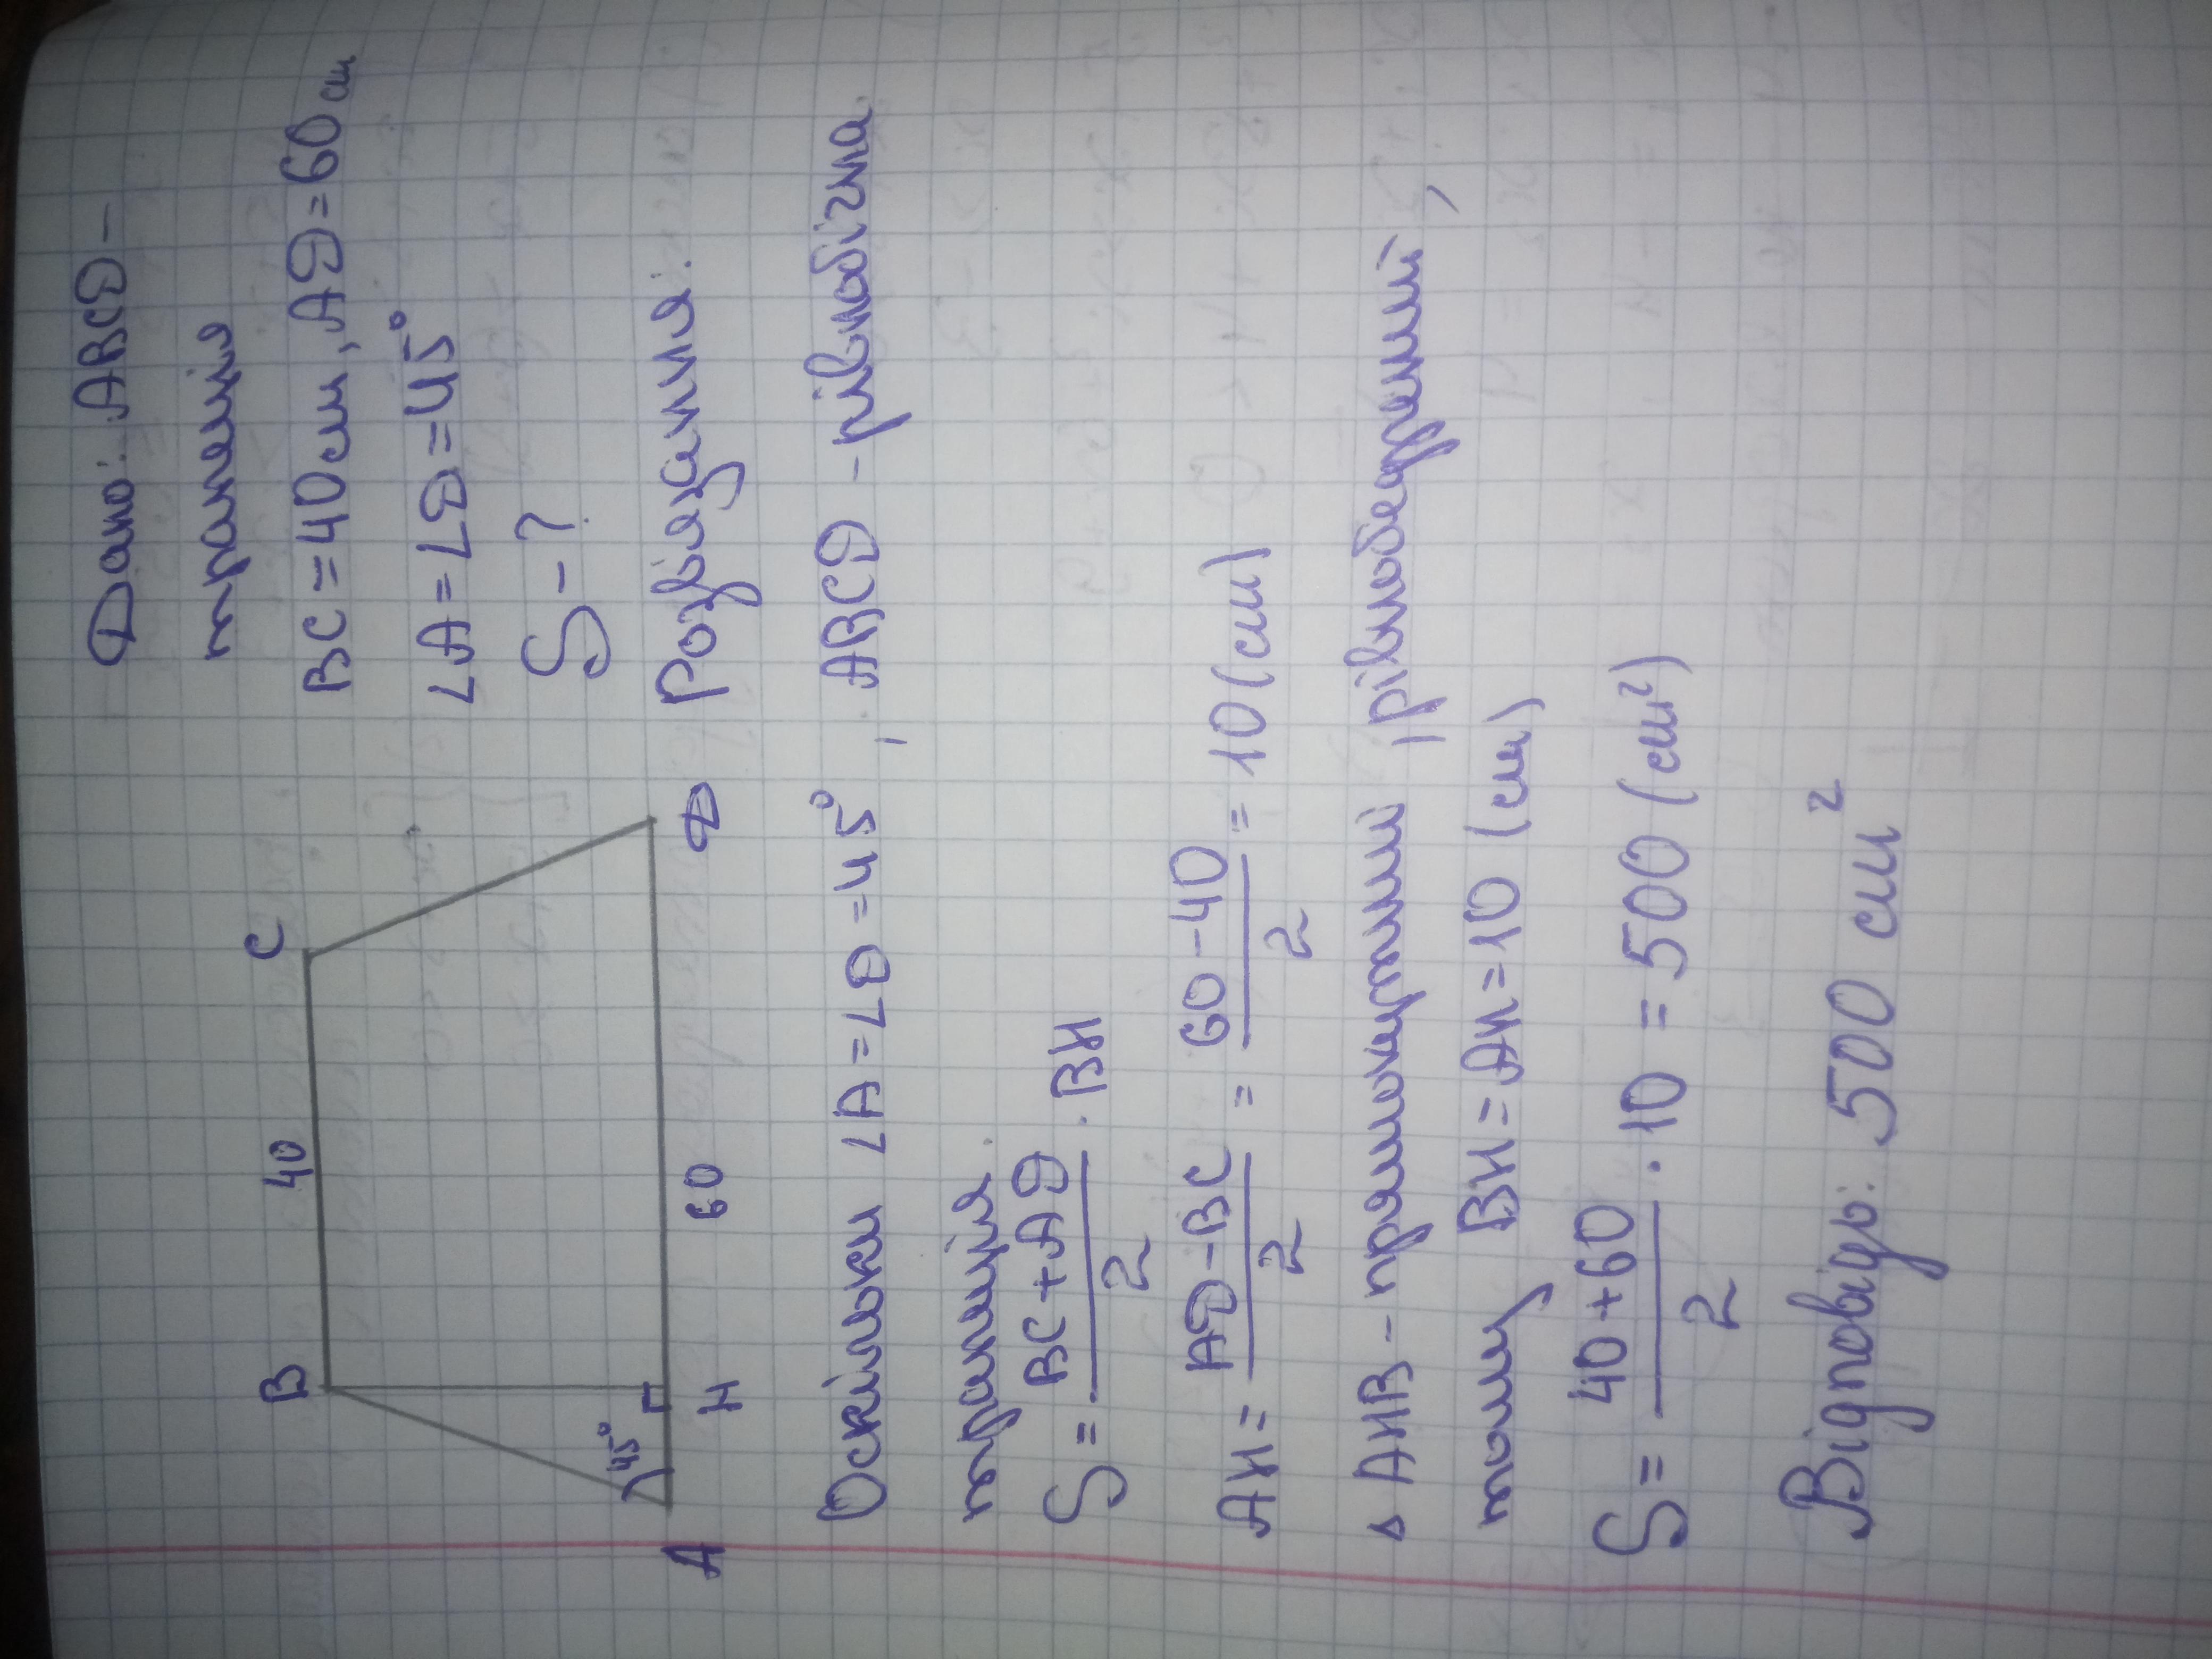 Дано: ABCD –
трапеція
BC = 40 см, AD = 60 см
∠A = ∠D = 45°
S – ?
B 40 C
45°
A H 60 D
Розв'язання:
Оскільки ∠A = ∠D = 45°, ABCD – рівнобічна
трапеція.
S = \frac{BC + AD}{2} · BH
AH = \frac{AD – BC}{2} = \frac{60 – 40}{2} = 10 (см)
△ AHB – прямокутний, рівнобедрений,
тому BH = AH = 10 (см)
S = \frac{40 + 60}{2} · 10 = 500 (см²)
Відповідь: 500 см²